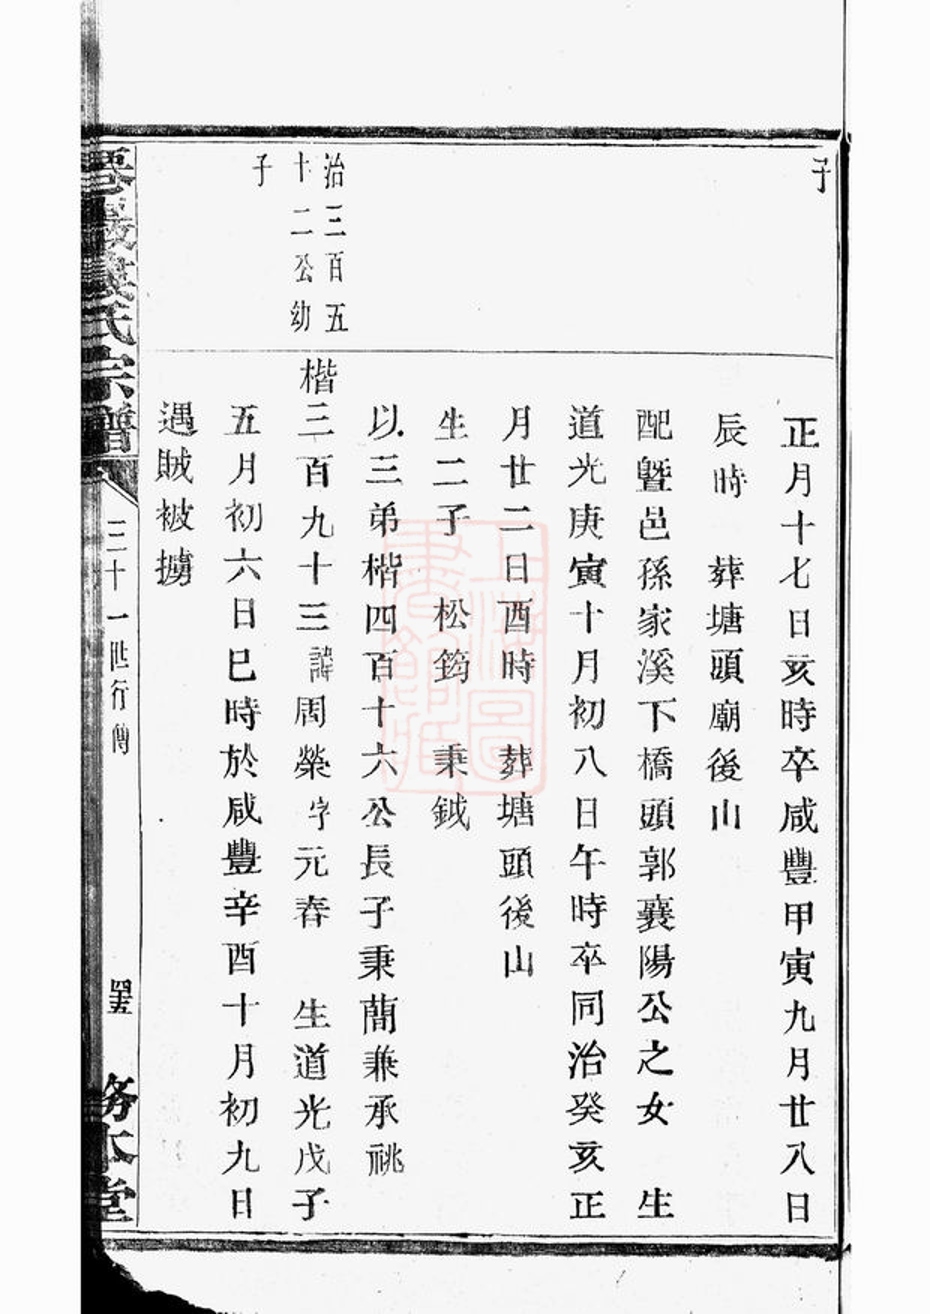 子
正月十七日亥時卒咸豐甲寅九月廿八日
辰時　葬塘頭廟後山
配暨邑孫家溪下橋頭郭襄陽公之女　生
道光庚寅十月初八日午時卒同治癸亥正
月廿二日酉時　葬塘頭後山
生二子松筠　秉鉞
以三弟楷四百十六公長子秉蕳兼承祧
治三百五
十二公幼
子
楷三百九十三諱周榮字元春　生道光戊子
五月初六日巳時於咸豐辛酉十月初九日
遇賊被擄
氏宗譜
三十一世行傳
務本堂
上海圖
書館藏